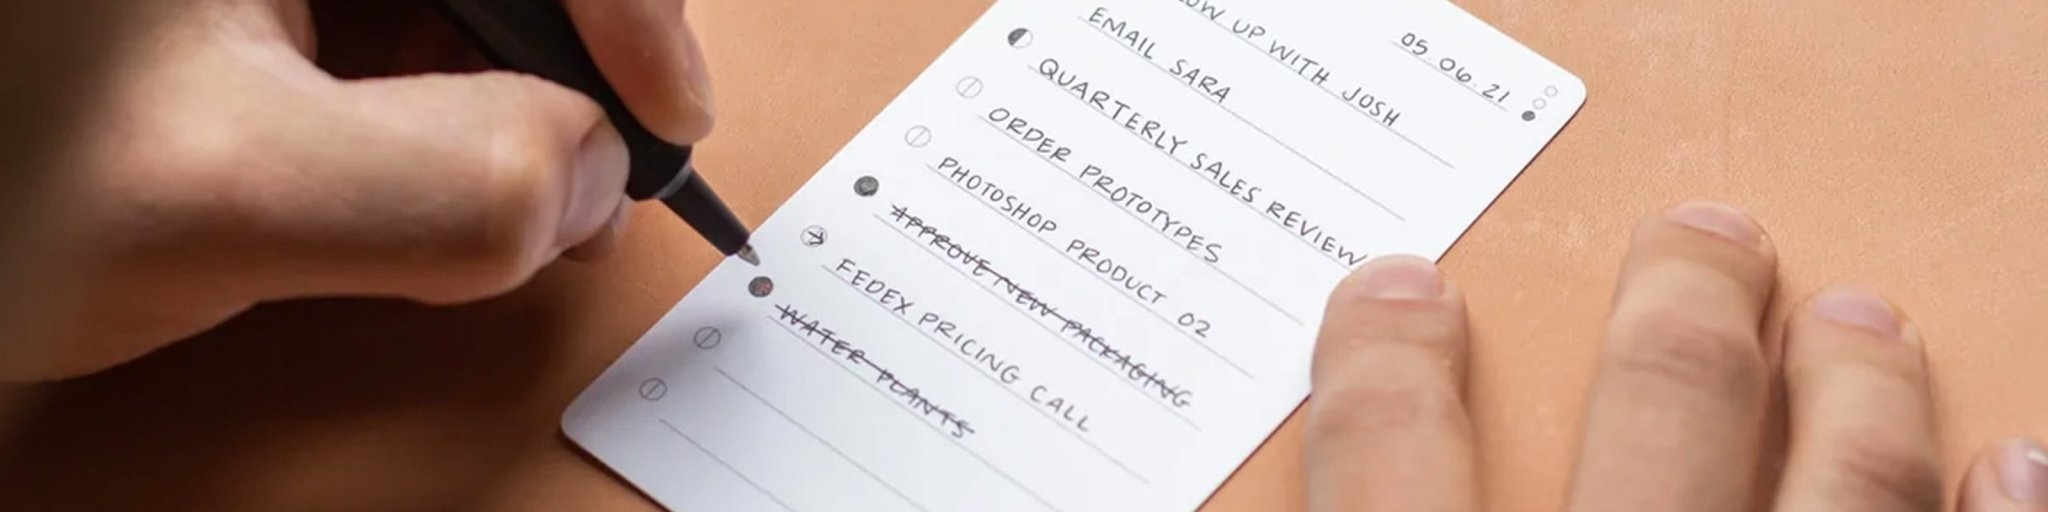 05.06.21
UP WITH JOSH
EMAIL SARA
QUARTERLY SALES REVIEW
ORDER PROTOTYPES
PHOTOSHOP PRODUCT 02
APPROVE NEW PACKAGING
FEDEX PRICING CALL
WATER PLANTS